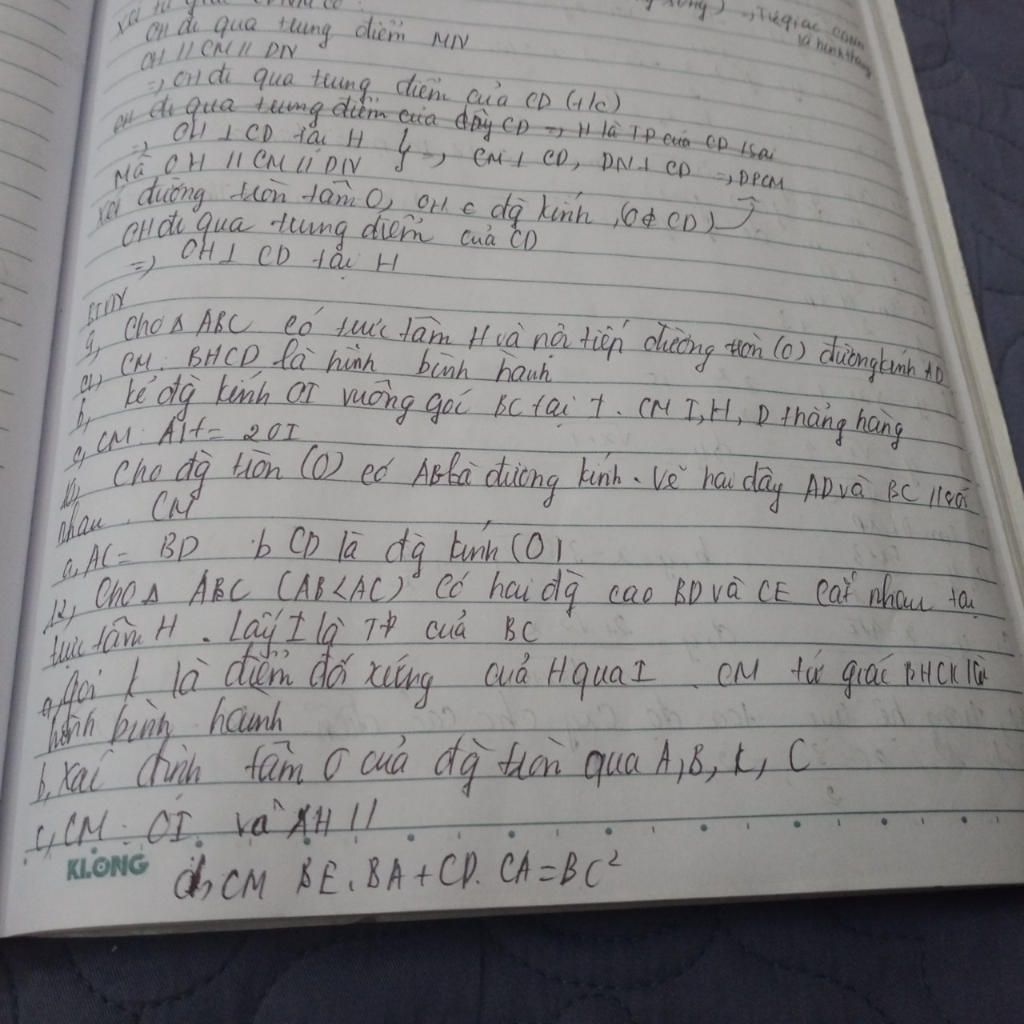 OH đi qua trung điểm MN
OH // CM // DN
=> OH đi qua trung điểm của CD (t/c)
OH đi qua trung điểm của dây CD => H là TĐ của CD
=> OH ⊥ CD tại H } => CM ⊥ CD, DN ⊥ CD => DPCM
Mà OH // CM // DN
Xét đường tròn tâm O, OH c đg kính, (O ∉ CD)
OH đi qua trung điểm của CD
=> OH ⊥ CD tại H
BTVN
9, Cho Δ ABC có trực tâm H và nội tiếp đường tròn (O) đường kính AD
a, CM: BHCD là hình bình hành
b, kẻ đg kính OI vuông góc BC tại I. CM I, H, D thẳng hàng
c, CM: AH = 2OI
10, Cho đg tròn (O) có AB là đường kính. Vẽ hai dây AD và BC // với
nhau. CM
a, AC = BD b CD là đg kính (O)
12, Cho Δ ABC (AB < AC) có hai đg cao BD và CE cắt nhau tại
trực tâm H. Lấy I là TĐ của BC
a, gọi K là điểm đối xứng của H qua I. CM tứ giác BHCK là
hình bình hành
b, xác định tâm O của đg tròn qua A, B, K, C
c, CM: OI và AH //
KLONG
d, CM BE. BA + CD. CA = BC²